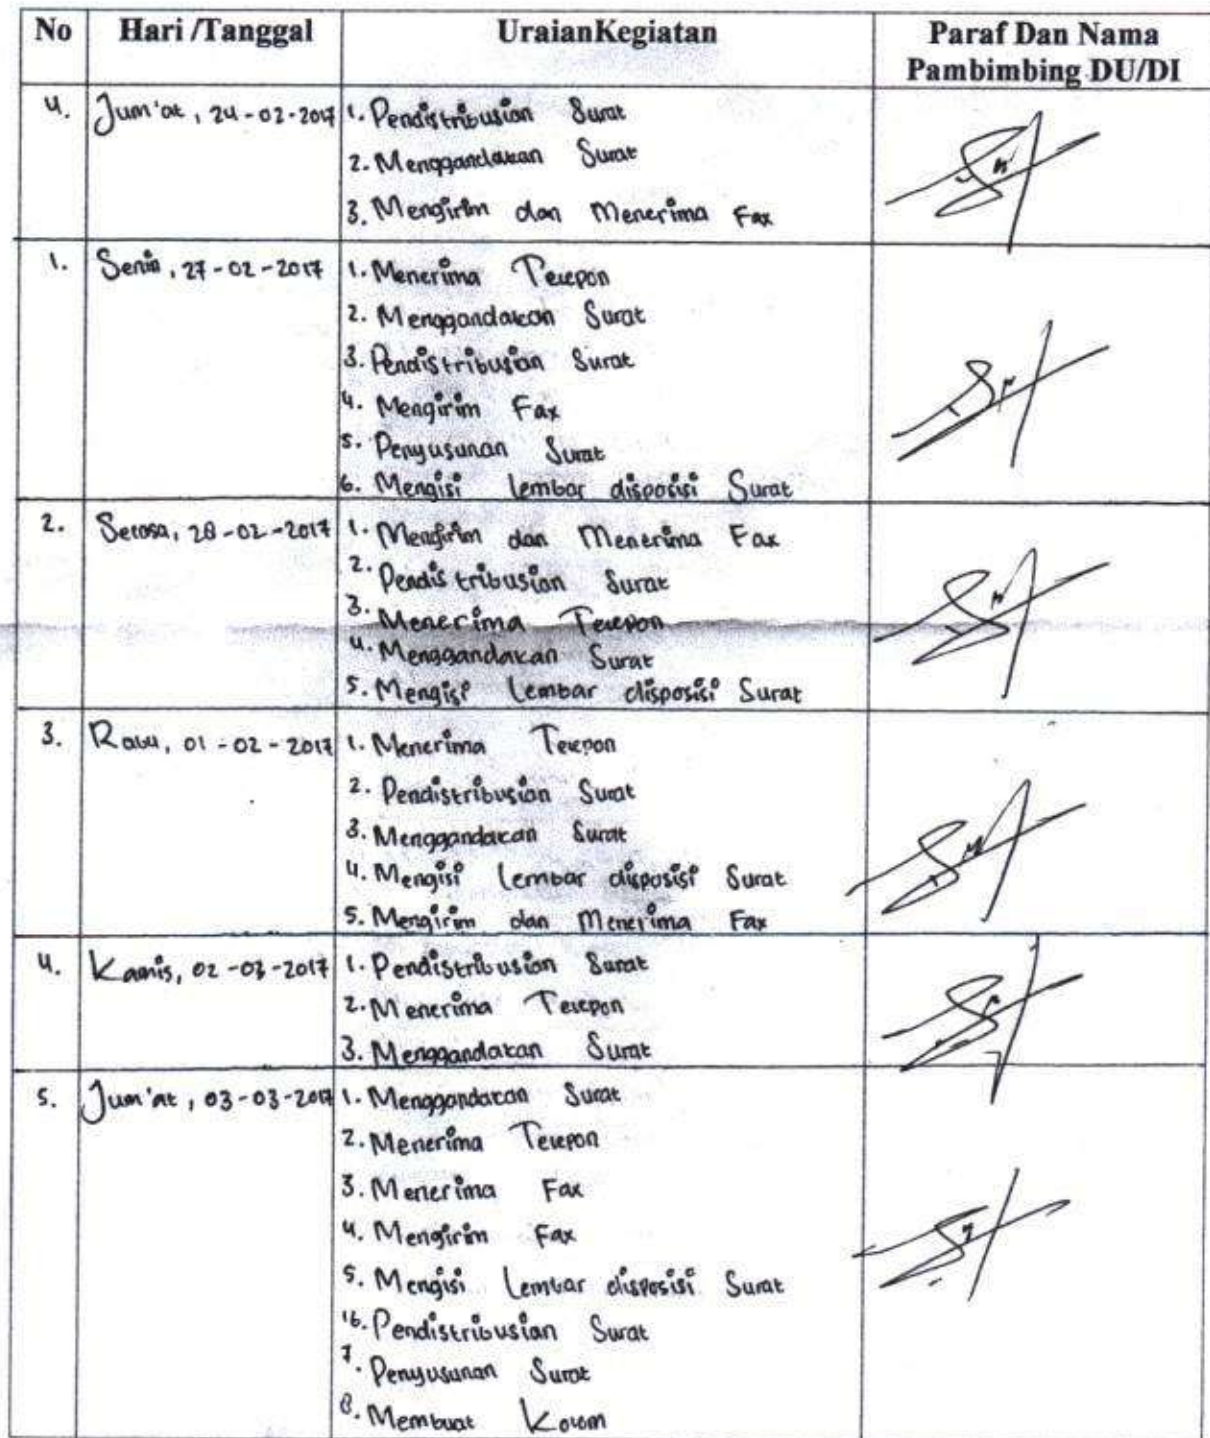 No Hari /Tanggal UraianKegiatan Paraf Dan Nama
Pambimbing DU/DI
4. Jum'at, 24-02-2017 1. Pendistribusian Surat
2. Menggandakan Surat
3. Mengirim dan Menerima Fax
1. Senin, 27-02-2017 1. Menerima Telepon
2. Menggandakan Surat
3. Pendistribusian Surat
4. Mengirim Fax
5. Penyusunan Surat
6. Mengisi lembar disposisi Surat
2. Selasa, 28-02-2017 1. Mengirim dan Menerima Fax
2. Pendistribusian Surat
3. Menerima Telepon
4. Menggandakan Surat
5. Mengisi Lembar disposisi Surat
3. Rabu, 01-02-2017 1. Menerima Telepon
2. Pendistribusian Surat
3. Menggandakan Surat
4. Mengisi Lembar disposisi Surat
5. Mengirim dan Menerima Fax
4. Kamis, 02-03-2017 1. Pendistribusian Surat
2. Menerima Telepon
3. Menggandakan Surat
5. Jum'at, 03-03-2017 1. Menggandakan Surat
2. Menerima Telepon
3. Menerima Fax
4. Mengirim Fax
5. Mengisi Lembar disposisi Surat
6. Pendistribusian Surat
7. Penyusunan Surat
8. Membuat Kolom